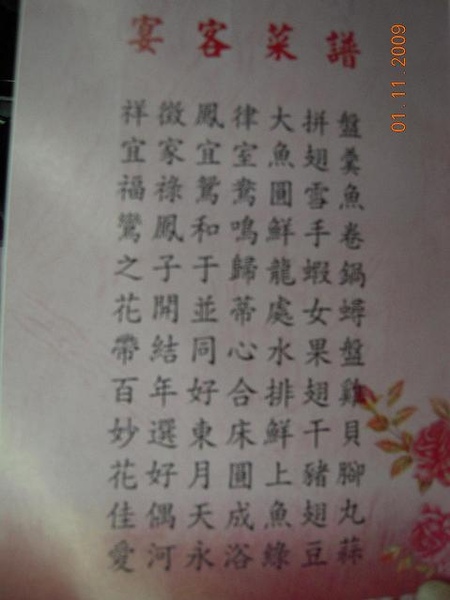 宴客菜譜
祥徵鳳律大拼盤
宜家宜室魚翅羹
福祿鴛鴦圓雪魚
鸞鳳和鳴鮮手卷
之子于歸龍蝦鍋
花開並蒂處女蟳
帶結同心水果盤
百年好合排翅雞
妙選東床鮮干貝
花好月圓上豬腳
佳偶天成魚翅丸
愛河永浴綠豆蒜
01.11.2009